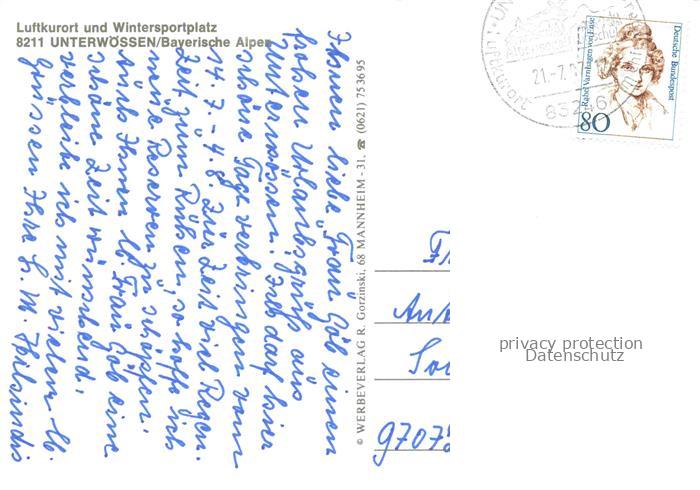 Luftkurort und Wintersportplatz
8211 UNTERWÖSSEN/Bayerische Alpen
Ihnen liebe Frau Göb einen
frohen Urlaubsgruß aus
Unterwössen. Ich darf hier
schöne Tage verbringen vom
14.7. - 4.8. Zur Zeit viel Regen.
Zeit zum Ruhen, so hoffe ich
neue Reserven zu schöpfen.
Auch Ihnen lb. Frau Göb eine
schöne Zeit wünschend,
verbleibe ich mit vielen lb.
Grüssen Ihre S. M.
© WERBEVERLAG R. Gorzinski, 68 MANNHEIM - 31, ☎ (0621) 75 36 95
Deutsche Bundespost
Rahel Varnhagen von Ense
80
21.-7.
83246
Luftkurort
97078
privacy protection
Datenschutz